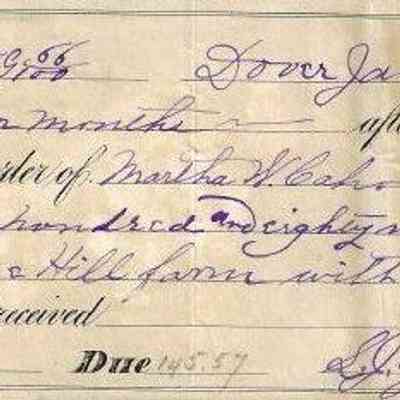 9 66/100 Dover Ja
months afte
rder of Martha W. Caho
hundred and eighty n
e Hill farm with
received
Due 145.57 L.J.